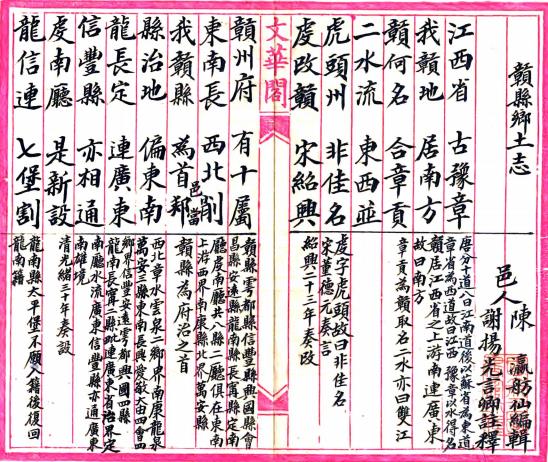 贛縣鄉土志
邑人 陳瀛舫仙編輯
謝揚光言卿註釋
江西省 古豫章
唐分十道八曰江南道後以蘇省為東道
章省為西道故曰江西 豫章以水得名
我贛地 居南方
贛居江西省之上游南連廣東
故曰南方
贛何名 合章貢
章貢為贛取名二水亦曰雙江
二水流 東西並
虎頭州 非佳名
虔字虎頭故曰非佳名
虔改贛 宋紹興
宋董德元奏言
紹興二十三年奏改
文華閣
贛州府 有十屬
贛縣雩都縣信豐縣興國縣會
昌縣安遠縣龍南縣長寧縣定南
廳虔南廳共八縣二廳俱在東南
東南長 西北削
上游西界南康縣北界萬安縣
我贛縣 為首邦
邑當
贛縣為府治之首
縣治地 偏東南
西北章水雲泉二鄉界南康龍泉
萬安三縣東南長興愛敬大由四會四
鄉界信豐安遠雩都興國四縣
龍長定 連廣東
龍南長寧二縣毗連廣東省治界定
南廳水流廣東信豐縣亦通廣東
南雄境
信豐縣 亦相通
虔南廳 是新設
清光緒三十年奏設
龍信連 七堡割
龍南縣太平堡不願入籍後復回
龍南籍